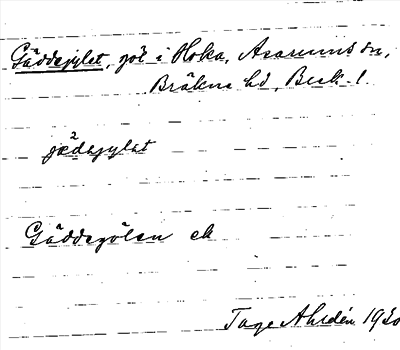 Gäddgylet, göl i Hoka, Asarums sn,
Bräkne hd, Blek. l.
jädsjylet
Gäddegölen ek
Tage Ahldén 1930